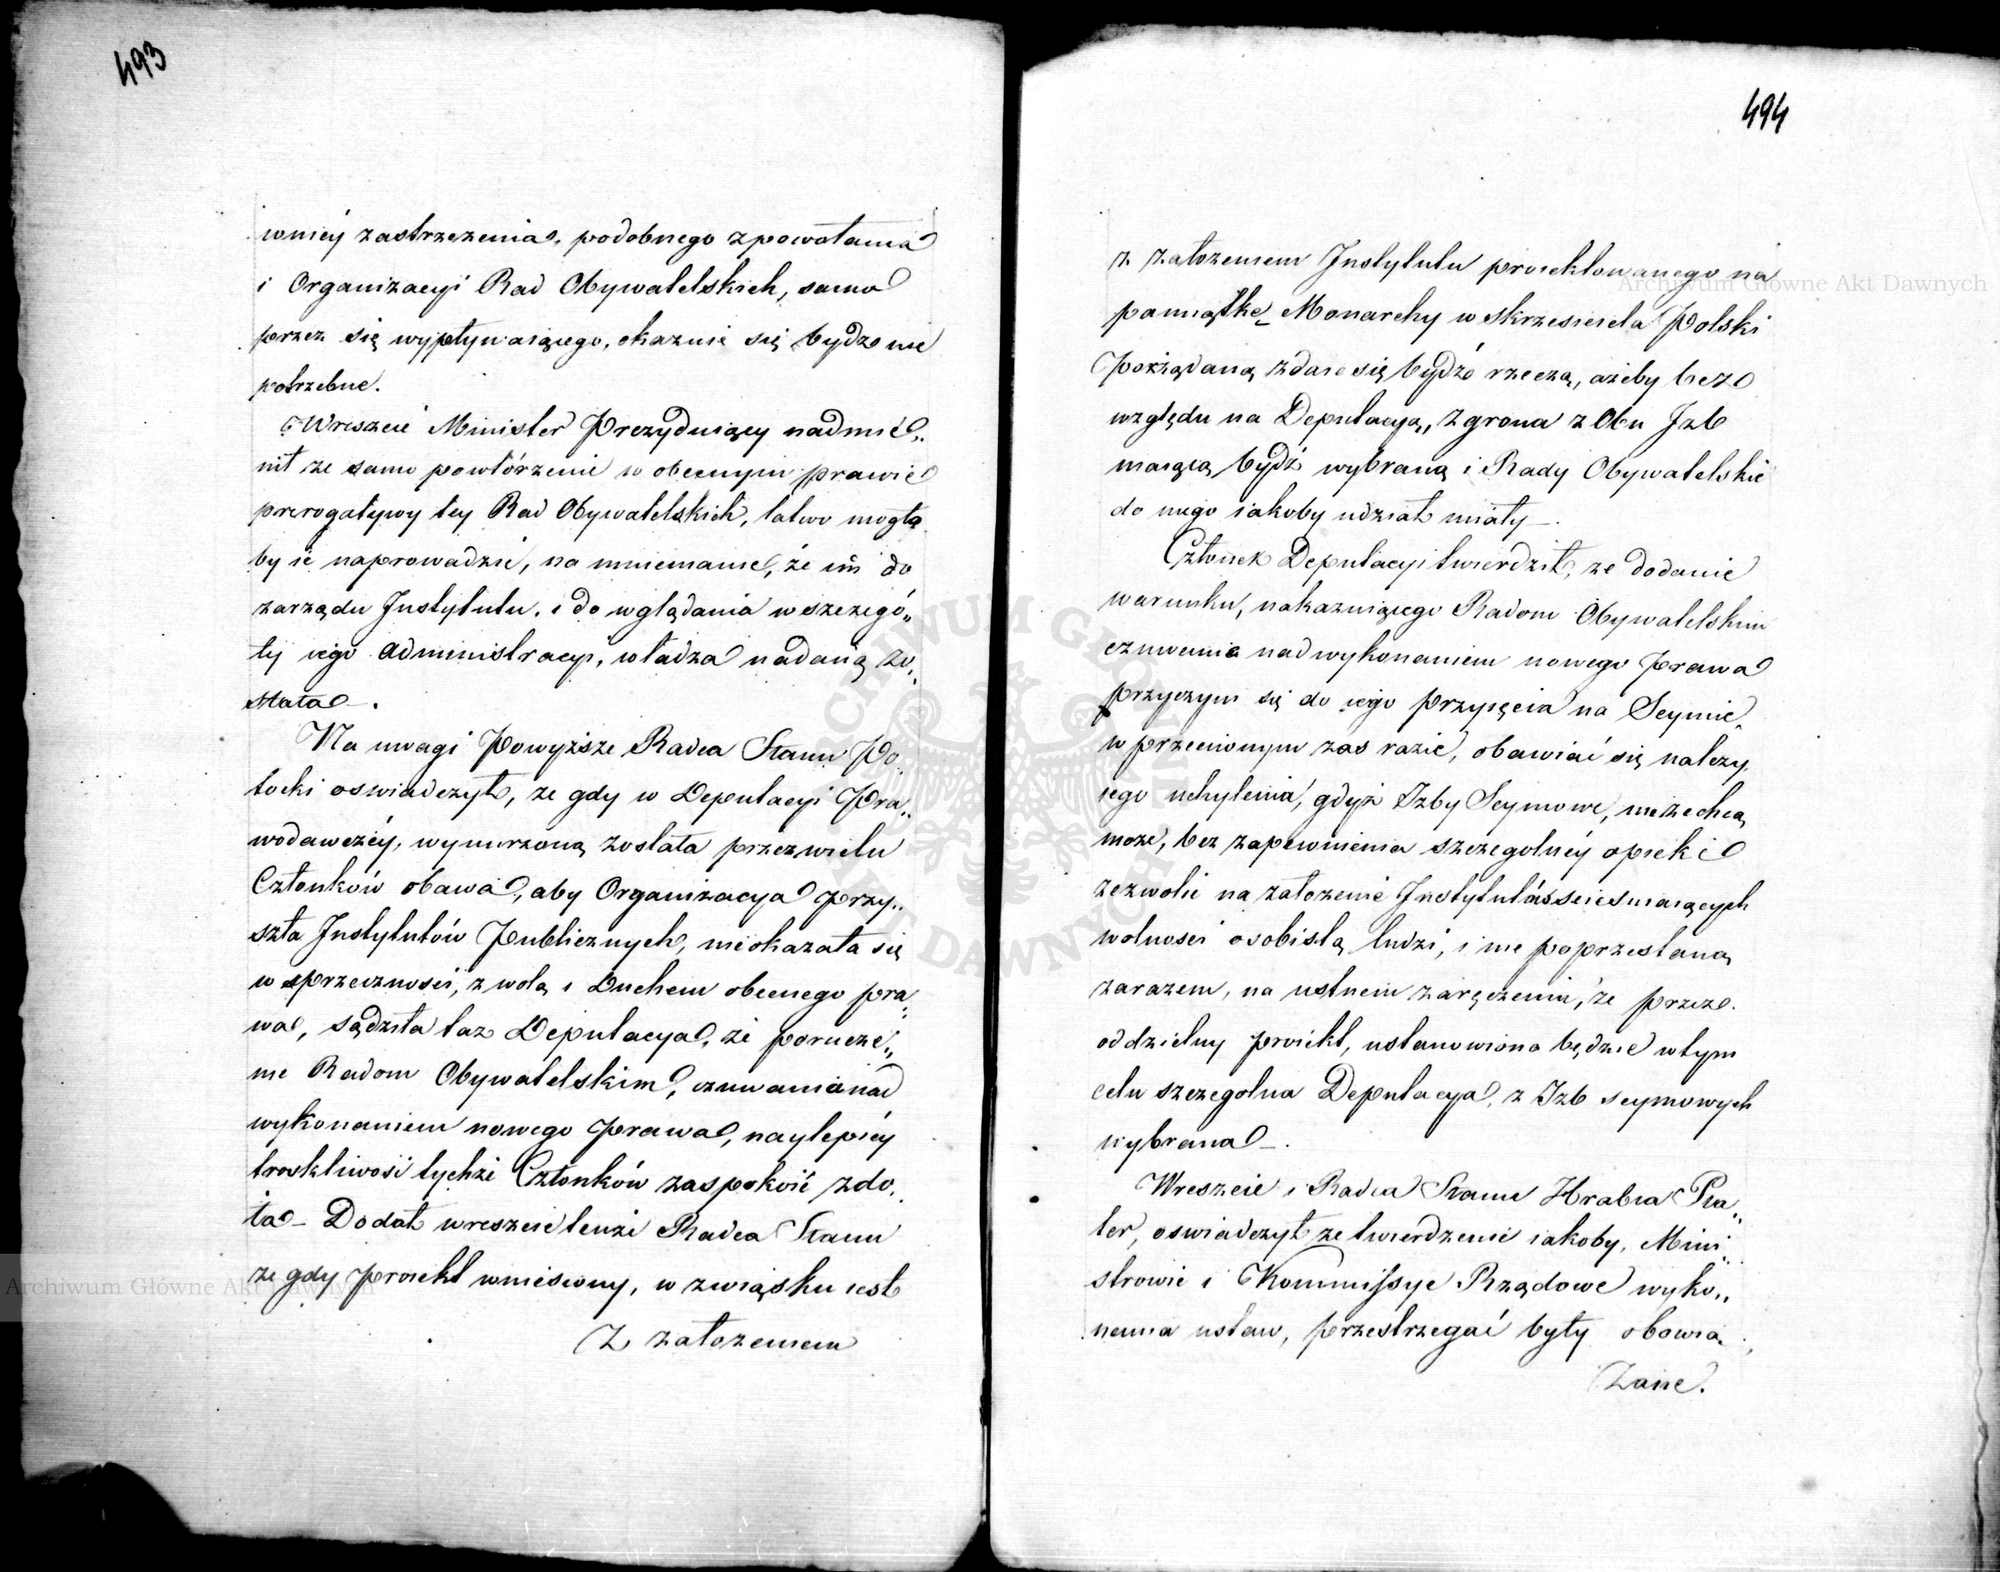 493
wniey zastrzezenia, podobnego z powołania
i Organizacyi Rad Obywatelskich, samo
przez się wypływaiącego, okazuie się bydz nie
potrzebne.
Wreszcie Minister Prezyduiący nadmie„
nił ze samo powtórzenie w obecnym prawie
prerogatywy tey Rad Obywatelskich, łatwo mogło
by ie naprowadzić, na mniemanie, że im do
zarządu Instytutu, i do wglądania w szczegó„
ły iego administracyi, władza nadaną zo„
stała.
Na uwagi Powyższe Radca Stanu Po„
tocki oswiadczył, ze gdy w Deputacyi Pra„
wodawczéy, wynurzoną została przez wielu
Członków obawa, aby Organizacya przy„
szła Instytutów Publicznych, nie okazała się
w sprzeczności, z wolą i Duchem obecnego pra„
wa, sądziła taz Deputacya, że porucze„
nie Radom Obywatelskim, czuwania nad
wykonaniem nowego Prawa, naylepiéy
troskliwość tychże Członków zaspokoić zdo„
ła – Dodał wreszcie tenże Radca Stanu
ze gdy proiekt wniesiony, w związku iest
Z założeniem
494
z założeniem Instytutu proiektowanego na
pamiątkę Monarchy wskrzesiciela Polski
Pożądaną zdaie się bydź rzeczą, ażeby bez
względu na Deputacyą, z grona z Obu Izb
maiącą bydź wybraną i Rady Obywatelskie
do niego iakoby udział miały –.
Członek Deputacyi twierdził, ze dodanie
warunku, nakazuiącego Radom Obywatelskim
czuwanie nad wykonaniem nowego Prawa
przyczyni się do iego przyięcia na Seymie,
w przeciwnym zas razie, obawiać się należy,
iego uchylenia, gdyż Izby Seymowe, nie zechcą
może, bez zapewnienia szczególnéy opieki
zezwolić na założenie Instytutu ścieśniaiących
wolność osobistą ludzi, i nie poprzestaną
zarazem, na ustnem zaręczeniu, że przez
oddzielny proiekt, ustanowiona będzie w tym
celu szczególna Deputacya, z Izb seymowych
wybrana –.
Wreszcie i Radca Stanu Hrabia Pla„
ter, oswiadczył ze twierdzenie iakoby, Mini„
strowie i Kommissye Rządowe wyko„
nania ustaw, przestrzegać były obowią„
Zane.
Archiwum Główne Akt Dawnych
Archiwum Główne Akt Dawnych
ARCHIWUM GŁÓWNE AKT DAWNYCH